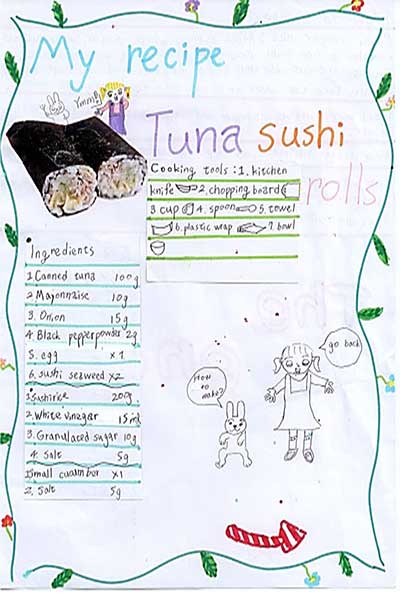 My recipe
Ymm!!
Tuna sushi
rolls
Cooking tools: 1. kitchen
knife 2. chopping board
3 cup 4. spoon 5. towel
6. plastic wrap 7. bowl
Ingredients
1. Canned tuna 100g
2. Mayonnaise 10g
3. Onion 15g
4. Black pepper powder 2g
5. egg x1
6. sushi seaweed x2
1. Sushi rice 200g
2. White vinegar 15ml
3. Granulated sugar 10g
4. Salt 5g
1. Small cucumber x1
2. Salt 5g
How to make?
go back